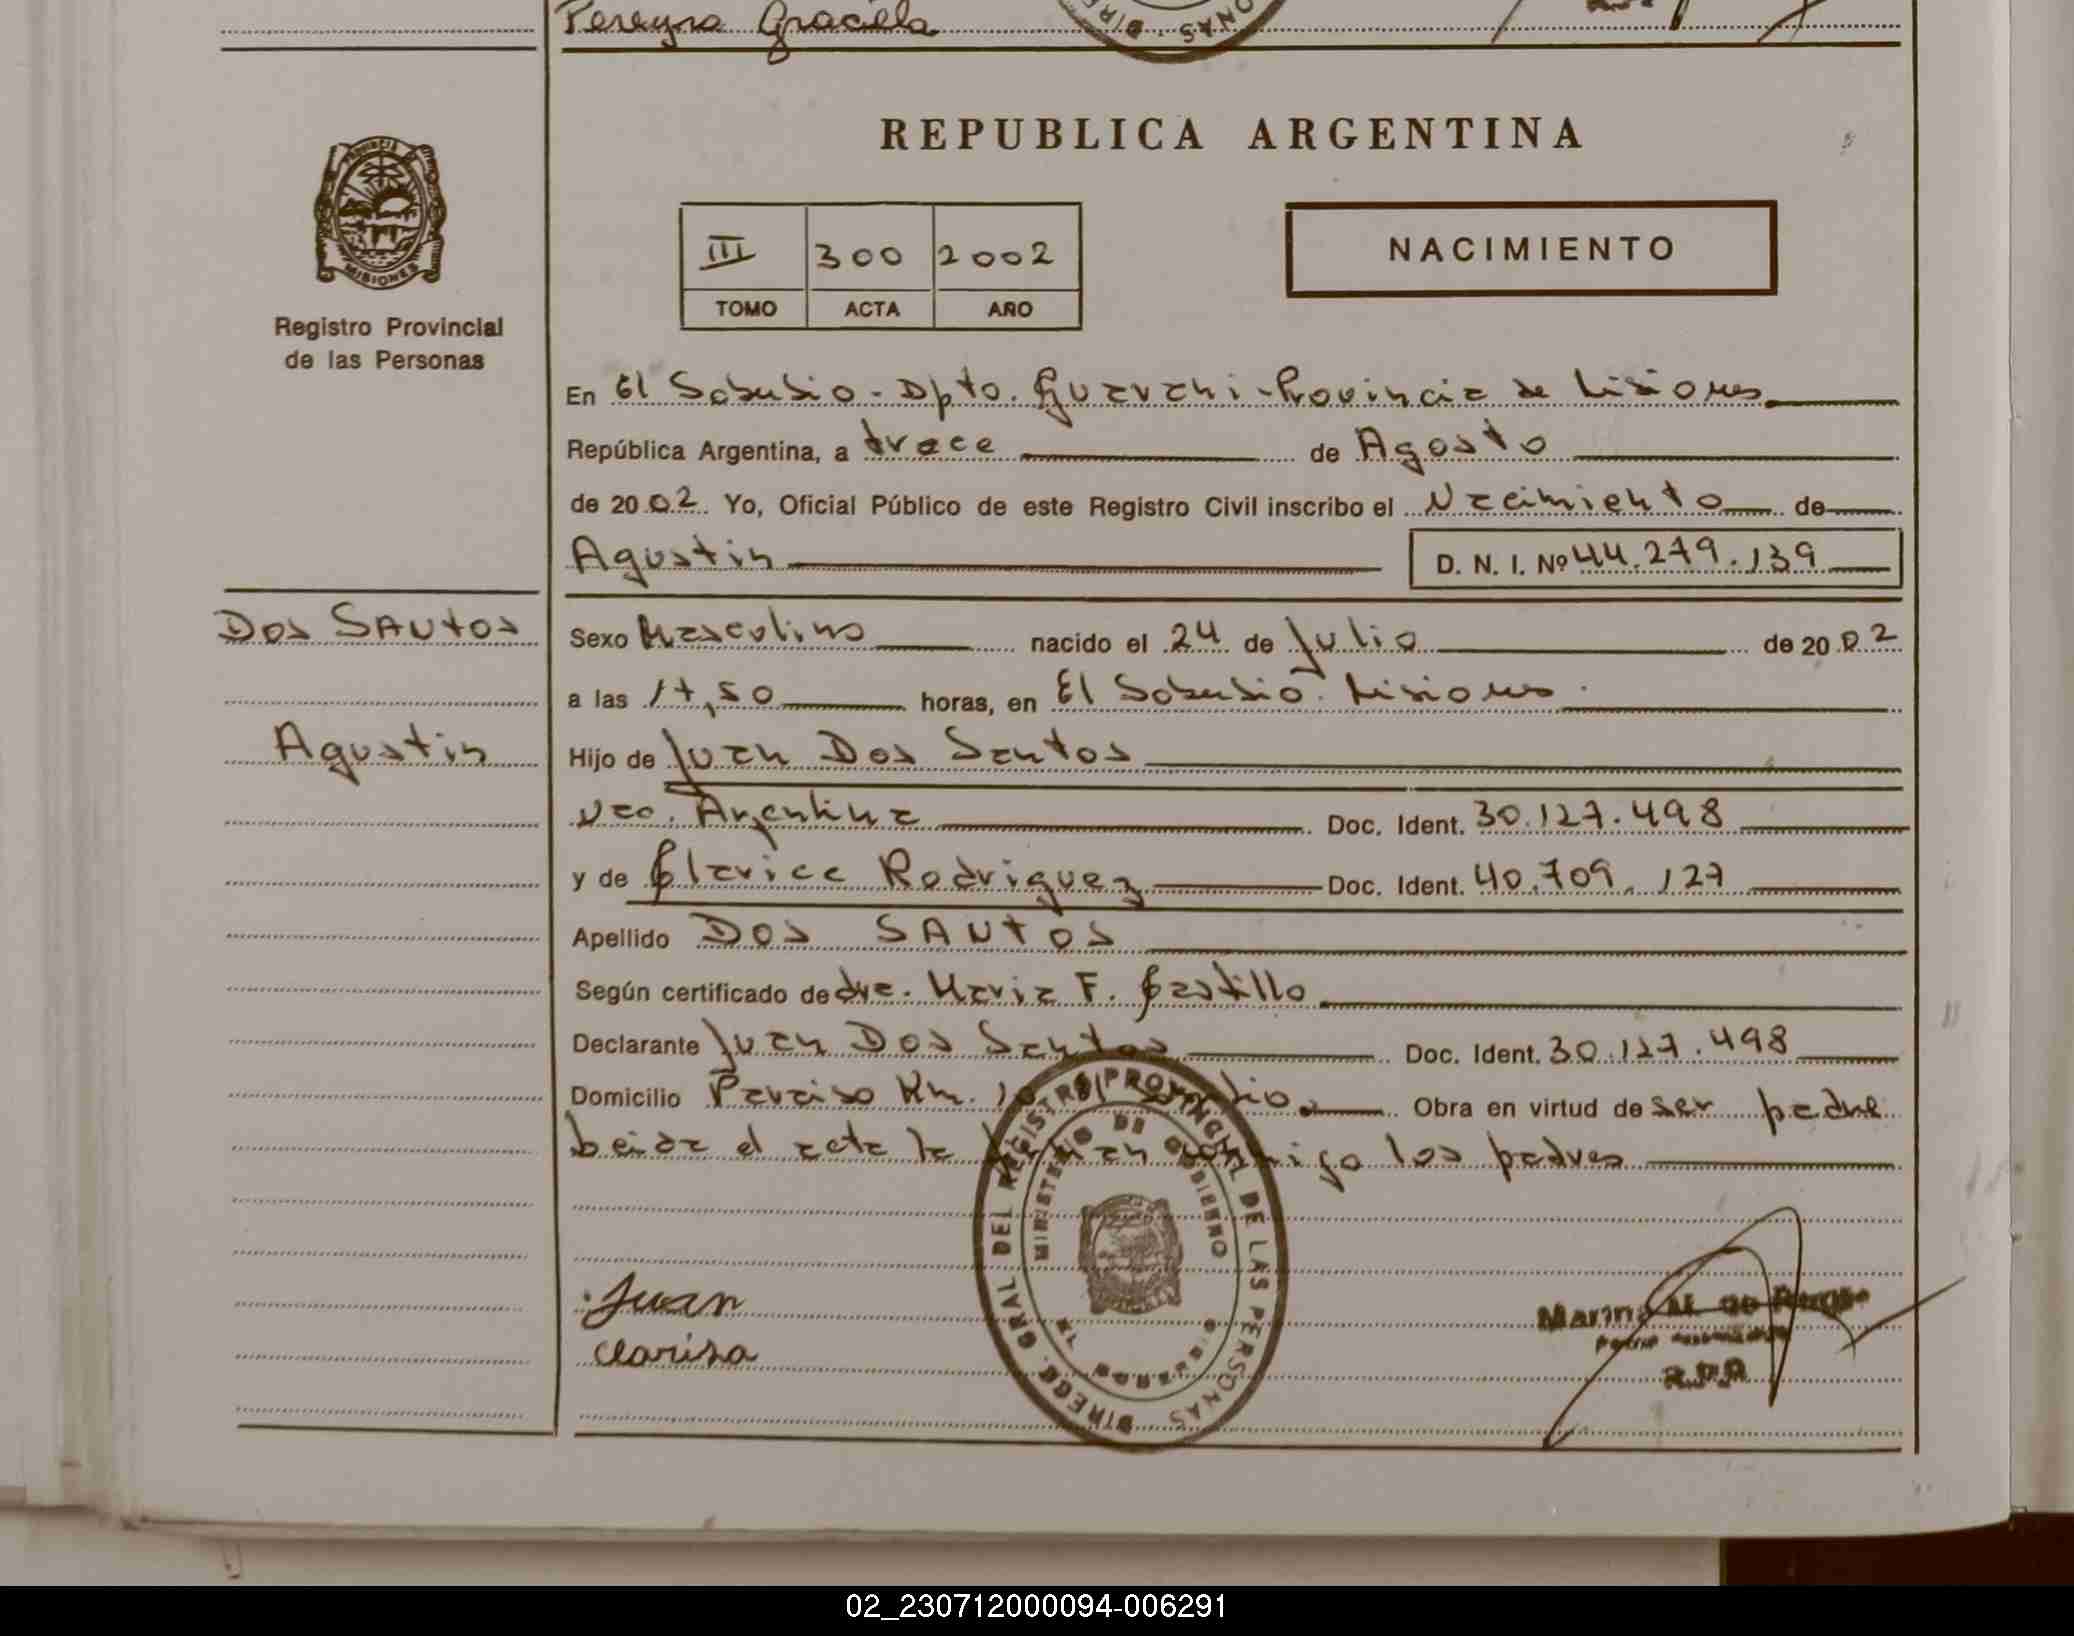 Pereyra Graciela
REPUBLICA ARGENTINA
PROVINCIA DE
MISIONES
Registro Provincial
de las Personas
III 300 2002
TOMO ACTA AÑO
NACIMIENTO
En El Soberbio - Dpto. Guarani - Provincia de Misiones
República Argentina, a trece de Agosto
de 2002. Yo, Oficial Público de este Registro Civil inscribo el Nacimiento de
Agustin D. N. I. Nº 44.279.139
Dos Santos
Agustin
Sexo Masculino nacido el 24 de Julio de 2002
a las 17,50 horas, en El Soberbio. Misiones.
Hijo de Juan Dos Santos
Nac. Argentina Doc. Ident. 30.127.498
y de Clarice Rodriguez Doc. Ident. 40.709.127
Apellido DOS SANTOS
Según certificado de dra. Maria F. Castillo
Declarante Juan Dos Santos Doc. Ident. 30.127.498
Domicilio Paraiso Km. 10 Obra en virtud de ser padre
Leida el acta la firman conmigo los padres
DIRECC. GRAL DEL REGISTRO PROVINCIAL DE LAS PERSONAS
MINISTERIO DE GOBIERNO
EL SOBERBIO
Juan
Clarisa
Marina M. de
R.P.P
02_230712000094-006291